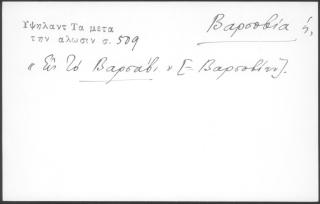 Υψηλαντ Τα μετα
την αλωσιν σ. 509
Βαρσοβία ἡ,
« Εἰς τὸ Βαρσάβι » [= Βαρσοβίαν].